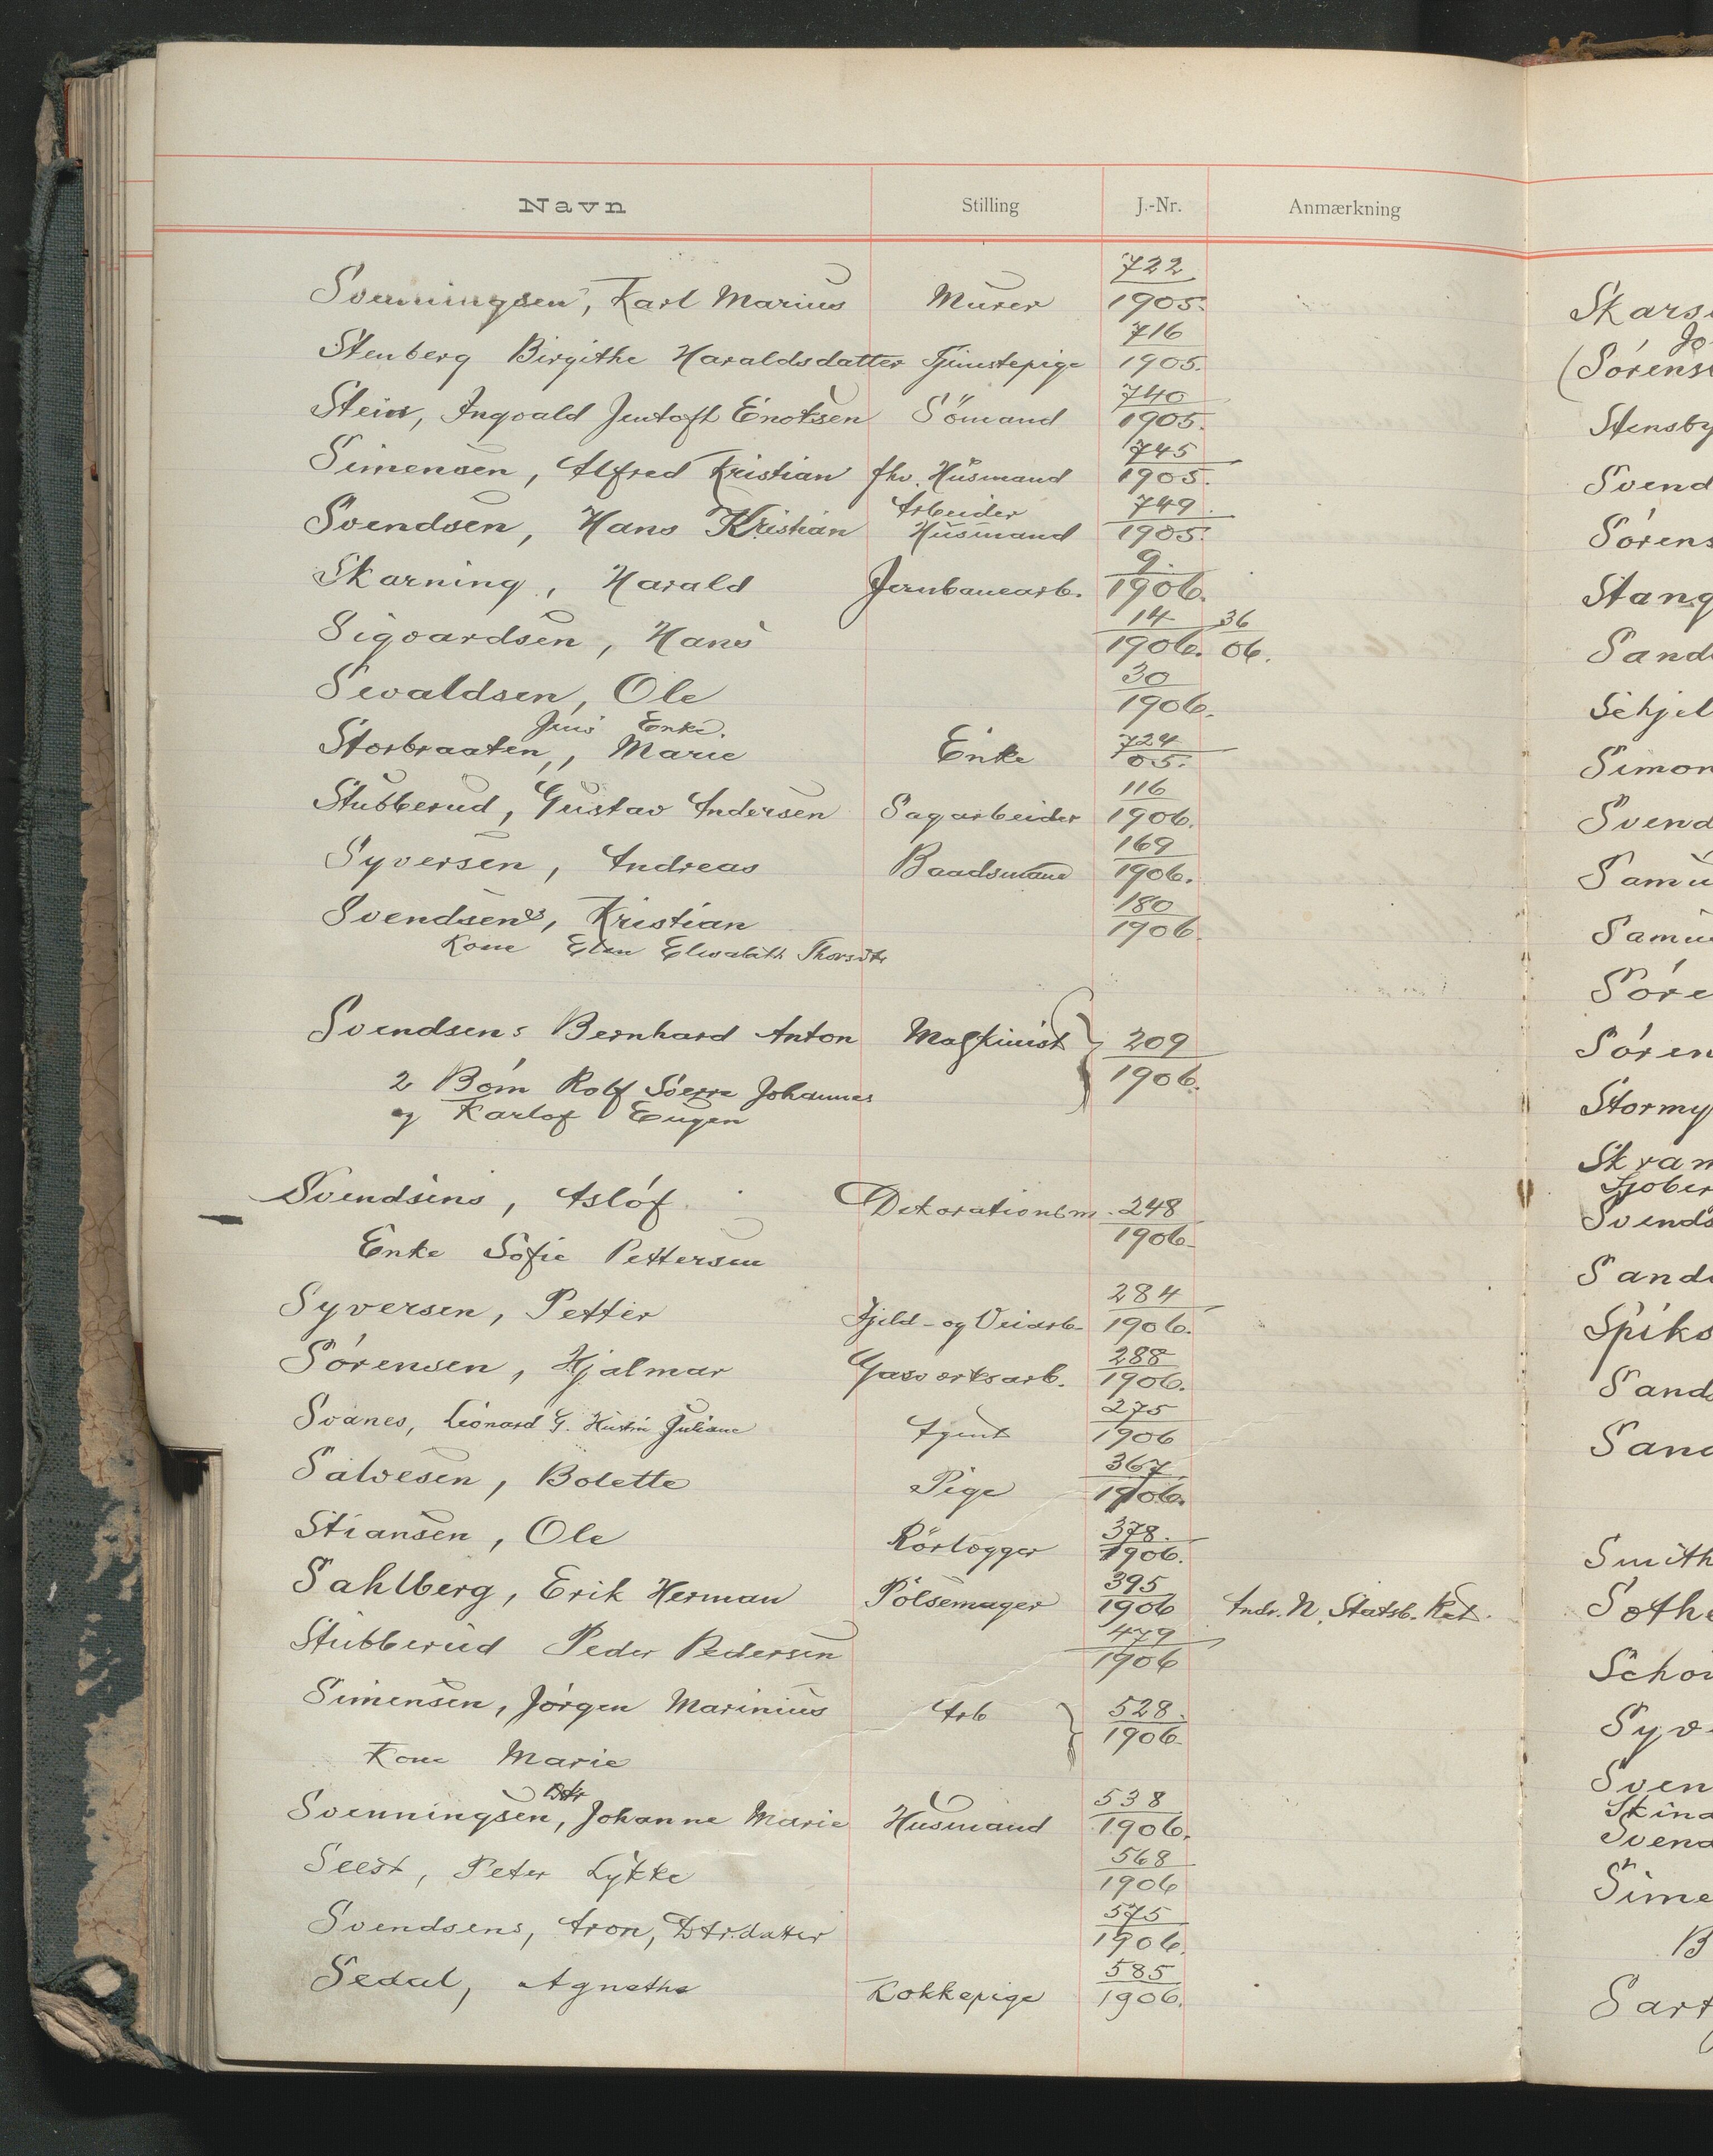 Navn Stilling J.-Nr. Anmærkning
Svenningsen, Karl Marius Murer 722/1905.
Stenberg Birgithe Haraldsdatter Tjenestepige 716/1905.
Stein, Ingvald Jentoft Enoksen Sömand 740/1905.
Simensen, Alfred Kristian fhv. Husmand 745/1905.
Svendsen, Hans Kristian Arbeider Husmand 749/1905.
Skarning, Harald Jernbanearb. 9./1906.
Sigvardsen, Hans 14/1906. 36/06.
Sevaldsen, Ole 30/1906.
Jens Enke.
Storbraaten,, Marie Enke 724/05.
Stubberud, Gustav Andersen Sagarbeider 116/1906.
Syversen, Andreas Baadsmand 169/1906.
Svendsens, Kristian 180/1906.
Kone Elen Elisabeth Thorsdtr
Svendsens Bernhard Anton Maskinist 209/1906.
2 Börn Rolf Sverre Johannes
og Karlof Eugen
Svendsens, Aslóf Dekorationsm. 248/1906.
Enke Sofie Pettersen
Syversen, Petter Fjeld- og Veiarb. 284/1906.
Sörensen, Hjalmar Gasverksarb. 288/1906.
Svanes, Leonard G. Hustru Juliane Agent 275/1906
Salvesen, Bolette Pige 367/1906.
Stiansen, Ole Rörlægger 378./1906.
Sahlberg, Erik Herman Pölsemager 395/1906 Andr. N. Statsb. Ret.
Stubberud Peder Pedersen 479/1906
Simensen, Jörgen Marinius Arb 528./1906.
Kone Marie
Dtr
Svenningsen, Johanne Marie Husmand 538/1906.
Seest, Peter Lykke 568/1906
Svendsens, Aron, Dtr.datter 575/1906.
Sedal, Agnethe Kokkepige 585/1906.
Skars
Jo
(Sörens
Stensby
Svend
Sörens
Stang
Sand
Schjel
Simon
Svend
Samu
Samu
Söre
Sören
Stormy
Skram
Sjöber
Svends
Sand
Spiks
Sand
Sand
Smith
Sothe
Schou
Syv
Sven
Skina
Svend
Sime
B
Sart